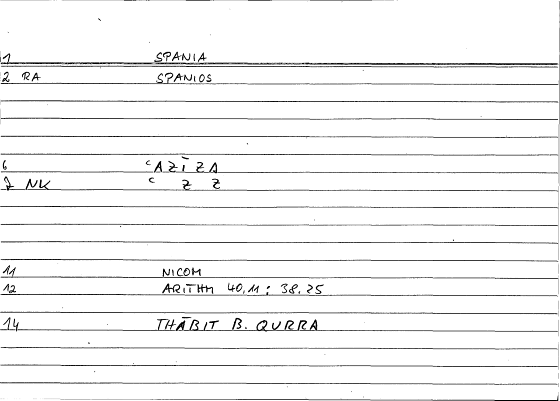 1 SPANIA
2 RA SPANIOS
6 ʿAZĪZA
7 NK ʿ Z Z
11 NICOM
12 ARITHM 40,11 ; 38.25
14 THĀBIT B. QURRA